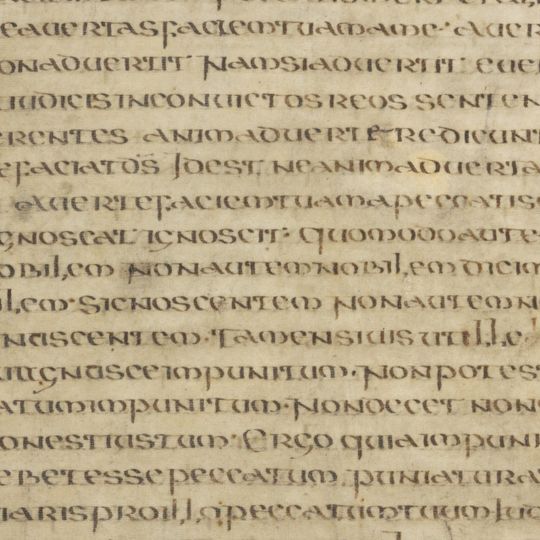 EAUERTASFACIEMTUAMAME· AUER
ONADUERTIT NAMSIADUERTIT EUE
IUDICISINCONUICTOSREOS SENTEN
ERENTES ANIMADUERTERE DICUNT
EFACIATDS IDEST NEANIMADUERTA
AUERTEFACIEMTUAMAPECCATIS
GNOSCAT IGNOSCIT· QUOMODOAUTE
OBILEM NONAUTEMNOBILEMDICIM
LEM· SICNOSCENTEM NONAUTEMN
NASCENTEM· TAMENSIUISUTILLE
IGNOSCEIMPUNITUM· NONPOTES
ATUMIMPUNITUM· NONOCCET NON
ONESTIUSTUM· ERGO QUIAIMPUNI
EBETESSEPECCATUM PUNIATURA
IARISPROILLO PECCATUMTUUMIUD